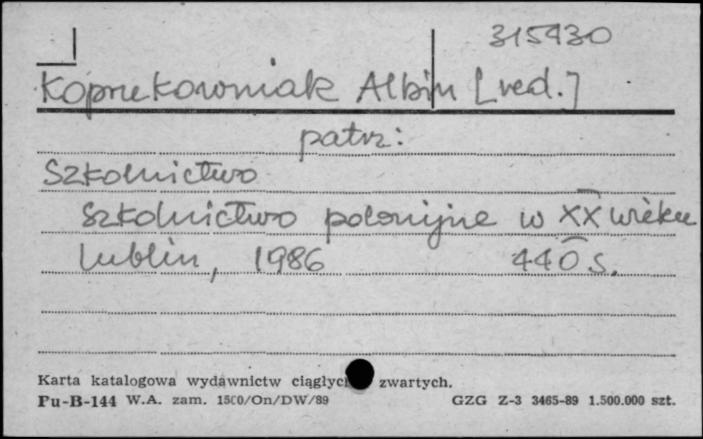 315930
Koprukowniak Albin [red.]
patrz:
Szkolnictwo
Szkolnictwo polonijne w XX wieku
Lublin, 1986 440 s.
Karta katalogowa wydawnictw ciągłyc zwartych.
Pu-B-144 W.A. zam. 1500/On/DW/89 GZG Z-3 3465-89 1.500.000 szt.